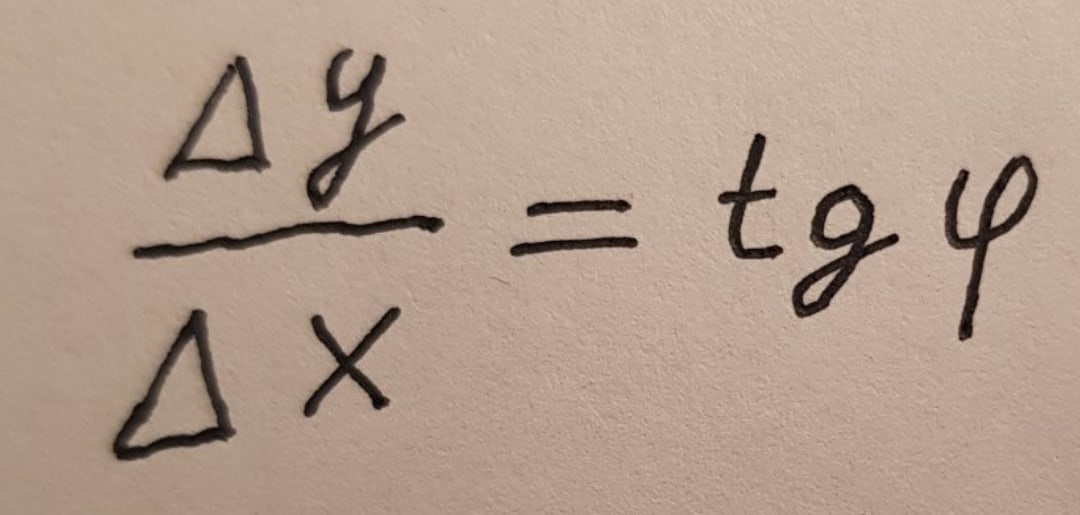 Δy
Δx
= tg φ